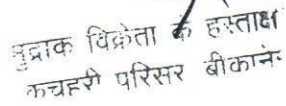 मुद्राक विक्रेता के हस्ताक्ष
कचहरी परिसर बीकाने